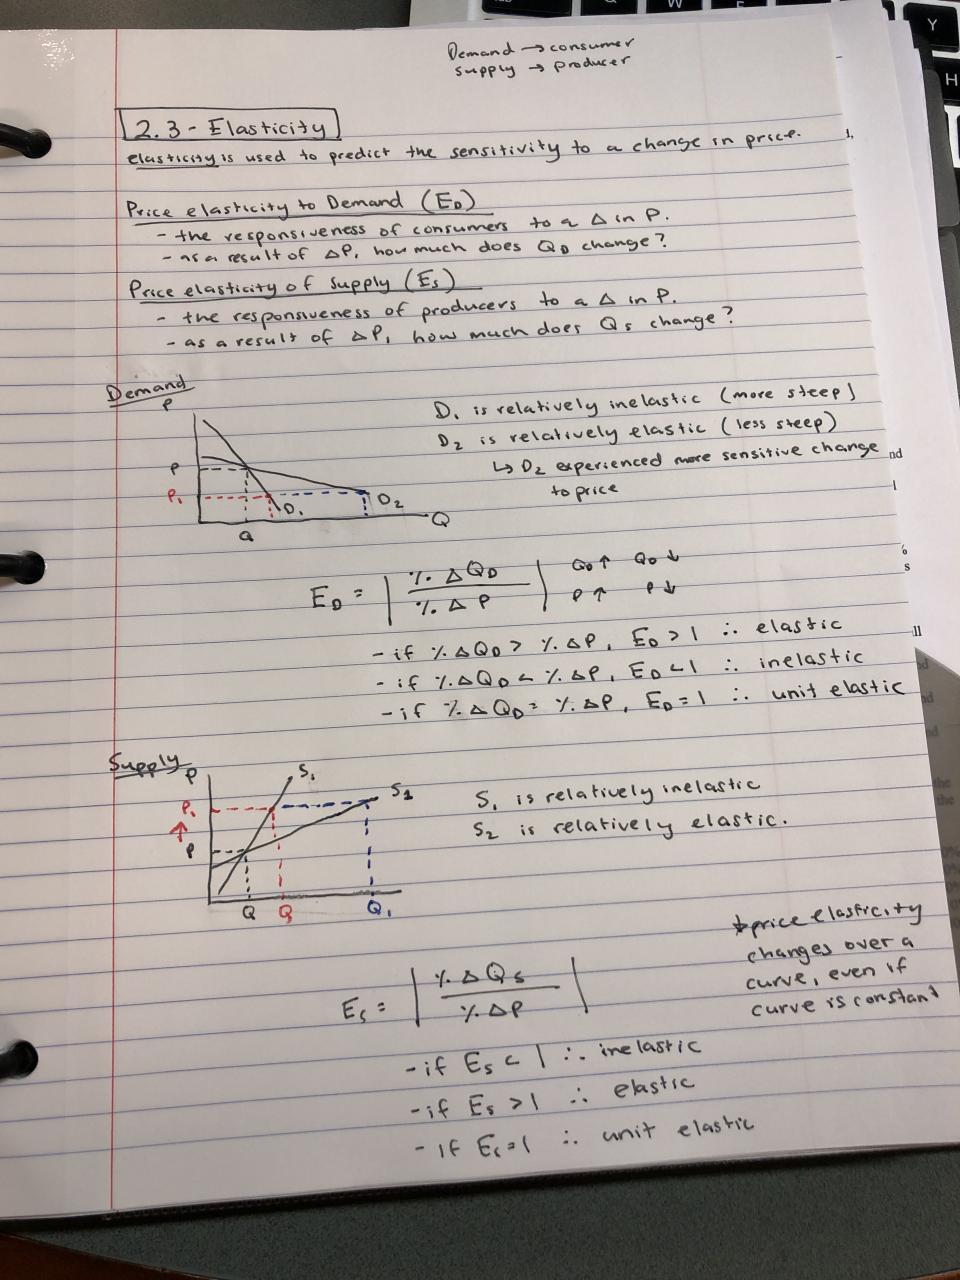 Demand → consumer
supply → producer
2.3 - Elasticity
elasticity is used to predict the sensitivity to a change in price.
Price elasticity to Demand (ED)
- the responsiveness of consumers to a Δ in P.
- as a result of ΔP, how much does QD change?
Price elasticity of supply (Es)
- the responsiveness of producers to a Δ in P.
- as a result of ΔP, how much does Qs change?
Demand
P
P
P₁
D₁
D₂
Q
Q
D₁ is relatively inelastic (more steep)
D₂ is relatively elastic (less steep)
↳ D₂ experienced more sensitive change
to price
ED = | % Δ QD / % Δ P |
QD ↑ QD ↓
P ↑ P ↓
- if % Δ QD > % ΔP, ED > 1 ∴ elastic
- if % Δ QD < % ΔP, ED < 1 ∴ inelastic
- if % Δ QD = % ΔP, ED = 1 ∴ unit elastic
Supply
P
P₁
↑
P
S₁
S₂
Q
Q
Q₁
S₁ is relatively inelastic
S₂ is relatively elastic.
* price elasticity
changes over a
curve, even if
curve is constant
Es = | % Δ Qs / % ΔP |
- if Es < 1 ∴ inelastic
- if Es > 1 ∴ elastic
- if Es = 1 ∴ unit elastic
W
Y
H